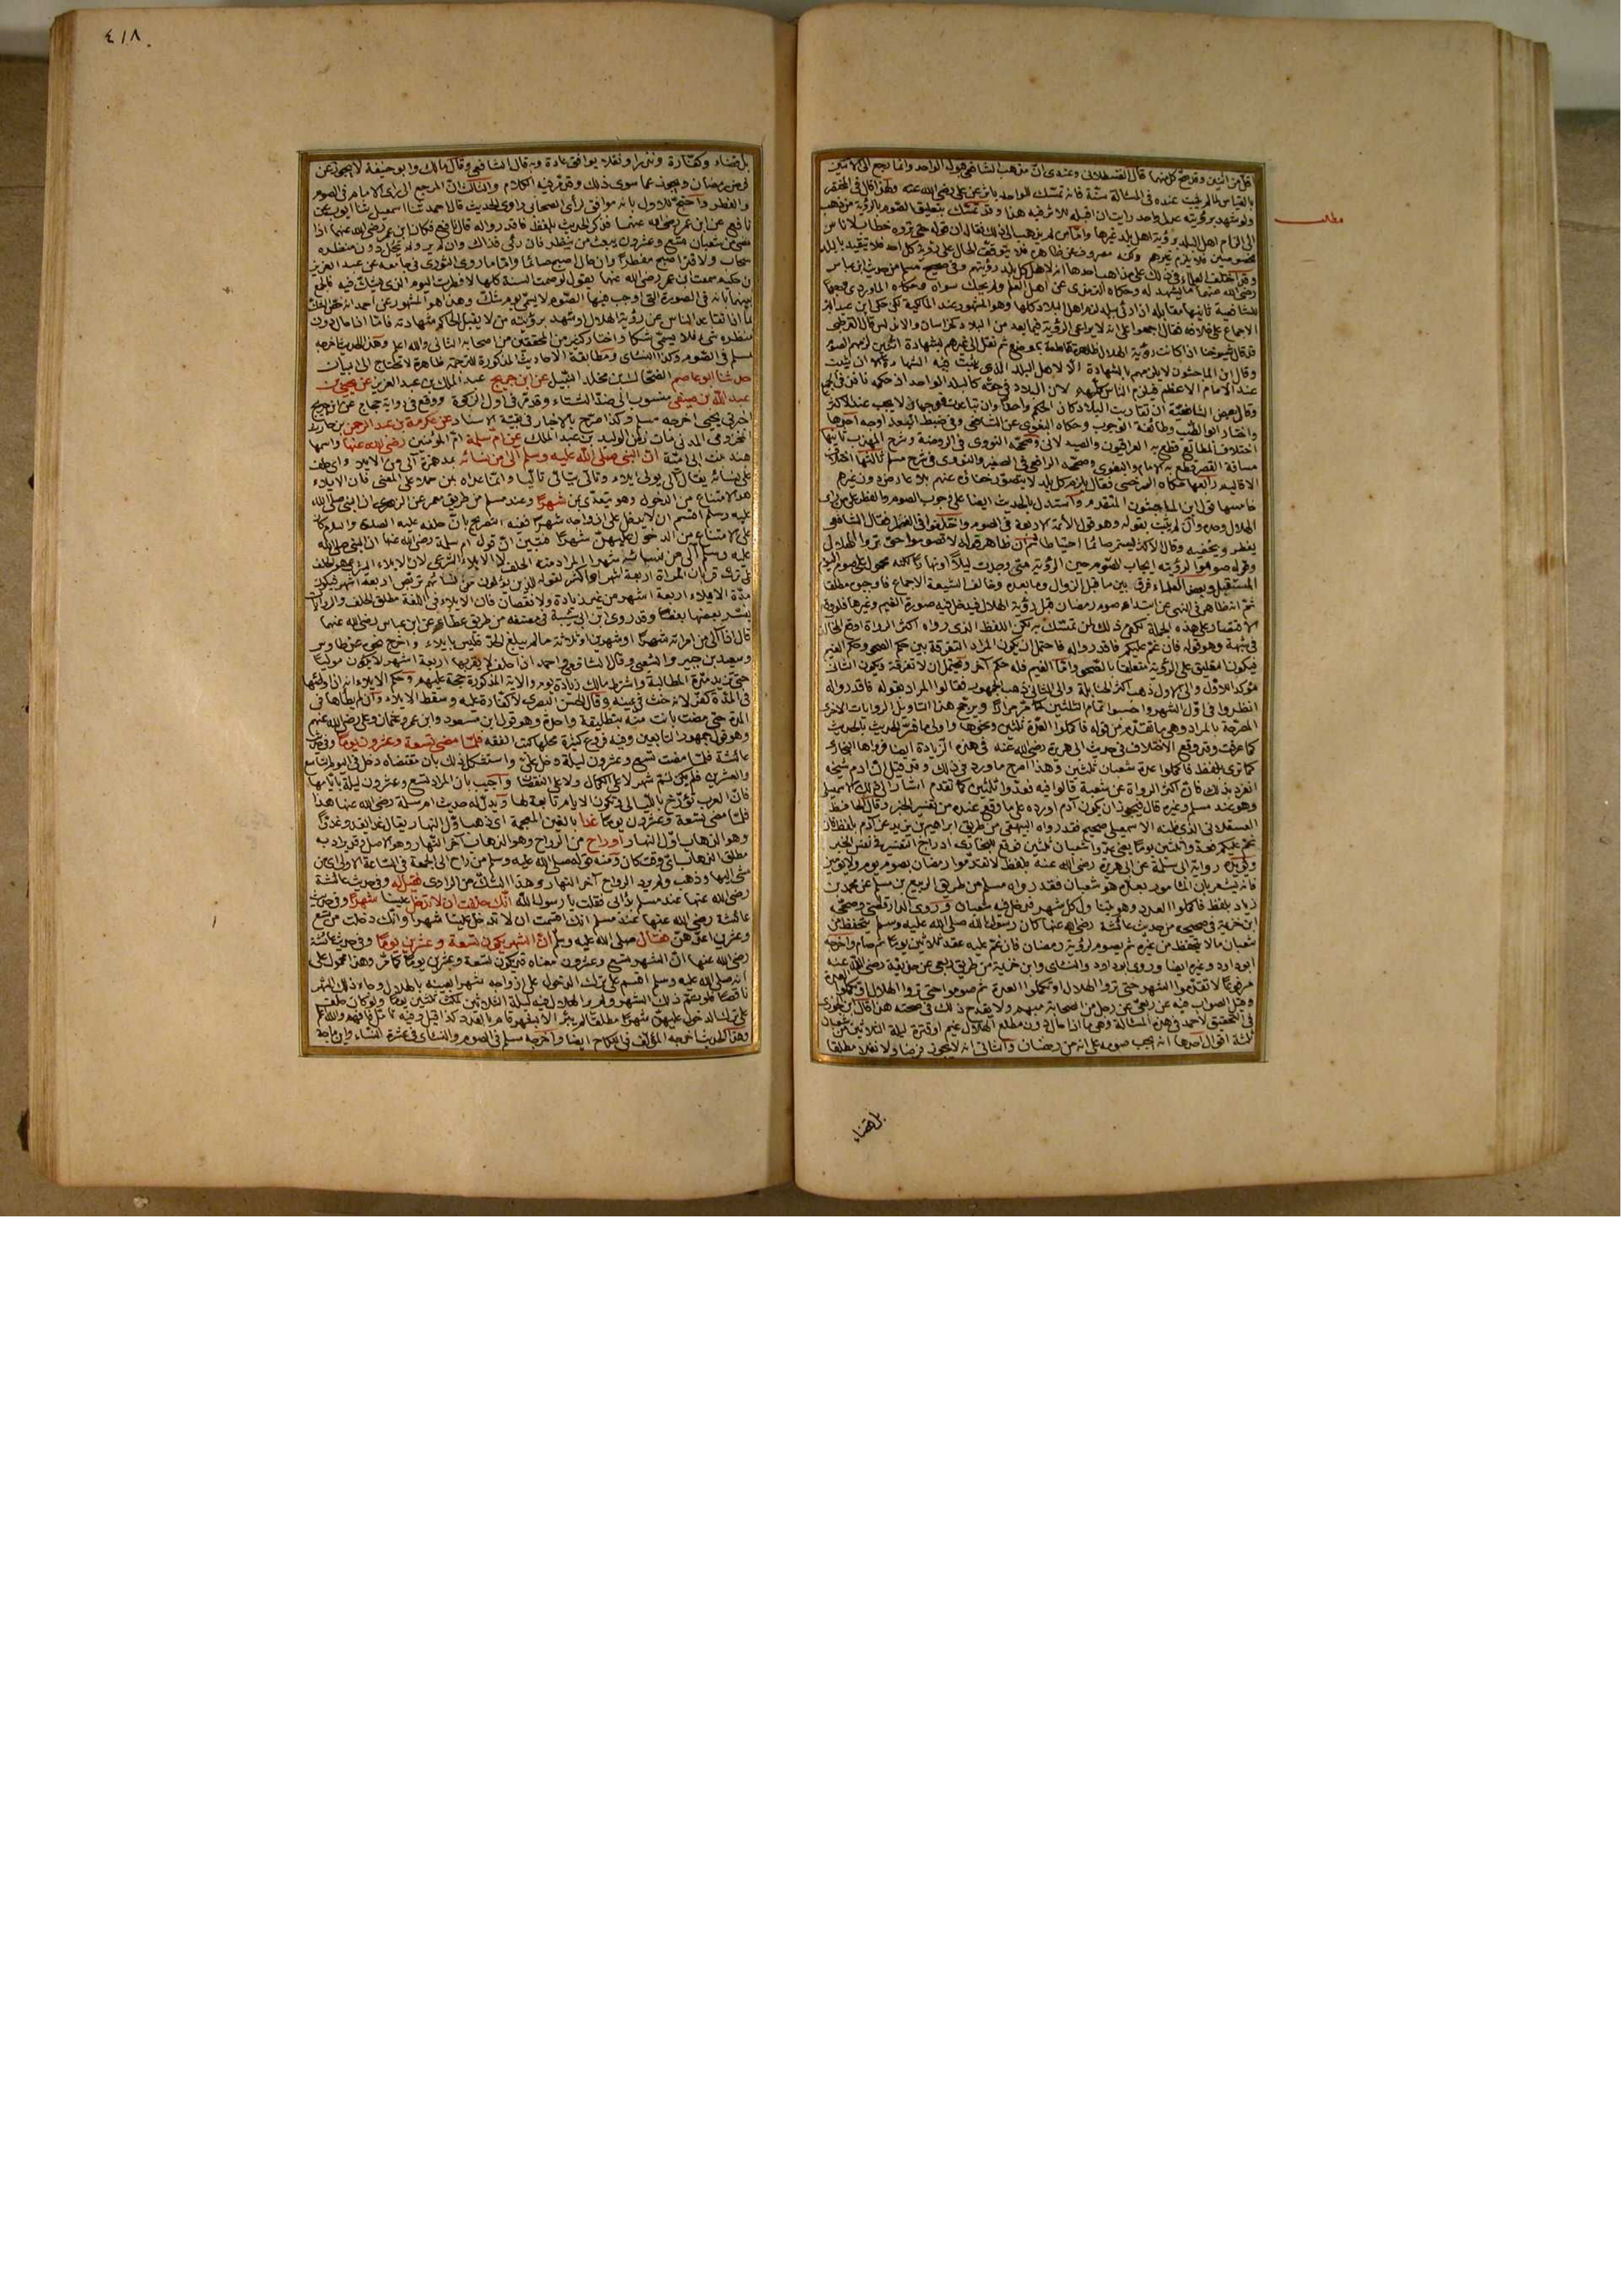 اقل من اثنين وقد صح كل منهما قال القسطلانى وعندى ان مذهب الشافعى قبول الواحد وانما رجع الى الاثنين
بالقياس لما لم يثبت عنده فى المسألة سنة فانه تمسك للواحد باثر عن على رضى الله عنه ولهذا قال فى المختصر
ولو شهد برؤيته عدل واحد رايت ان اقبله للاثر فيه هذا وقد تمسك بتعليق الصوم بالرؤية من ذهب
مطلب
الى الزام اهل البلد برؤية اهل بلد غيرها واما من لم يذهب الى ذلك فقال ان قوله حتى تروه خطاب لاناس
مخصوصين فلا يلزم غيرهم ولكنه مصروف عن ظاهره فلا يتوقف الحال على رؤية كل احد فلا يتقيد بالبلد
وقد اختلف العلماء فى ذلك على مذاهب احدها انه لاهل كل بلد رؤيتهم وفى صحيح مسلم من حديث ابن عباس
رضى الله عنهما ما يشهد له وحكاه الترمذى عن اهل العلم ولم يحك سواه وحكاه الماوردى وجها
للشافعية ثانيها مقابله انه اذا رئى ببلد لزم اهل البلاد كلها وهو المشهور عند المالكية لكن حكى ابن عبد البر
الاجماع على خلافه فقال اجمعوا على انه لا يراعى الرؤية فيما بعد من البلاد كخراسان والاندلس قال القرطبى
قد قال شيوخنا اذا كانت رؤية الهلال ظاهرة قاطعة بموضع ثم نقل الى غيرهم بشهادة اثنين لزمهم الصوم
وقال ابن الماجشون لا يلزمهم بالشهادة الا لاهل البلد الذى يثبت فيه الشهادة الا ان يثبت
عند الامام الاعظم فيلزم الناس كلهم لان البلاد فى حقه كالبلد الواحد اذ حكمه نافذ فى الجميع
وقال بعض الشافعية ان تقاربت البلاد كان الحكم واحدا وان تباعدت فوجهان لا يجب عند الاكثر
واختار ابو الطيب وطائفة الوجوب وحكاه البغوى عن الشافعى وفى ضبط البعد اوجه احدها
اختلاف المطالع قطع به العراقيون والصيدلانى وصححه النووى فى الروضة وشرح المهذب ثانيها
مسافة القصر قطع به الامام والبغوى وصححه الرافعى فى الصغير والنووى فى شرح مسلم ثالثها اختلاف
الاقاليم رابعها حكاه السرخسى فقال يلزم كل بلد لا يتصور خفاؤه عنهم بلا عارض دون غيرهم
خامسها قول ابن الماجشون المتقدم واستدل بالحديث ايضا على وجوب الصوم والفطر على من راى
الهلال وحده وان لم يثبت بقوله وهو قول الائمة الاربعة فى الصوم واختلفوا فى الفطر فقال الشافعى
يفطر ويخفيه وقال الاكثر يستمر صائما احتياطا ثم ان ظاهر قوله لا تصوموا حتى تروا الهلال
وقوله صوموا لرؤيته ايجاب للصوم حين الرؤية متى وجدت ليلا او نهارا لكنه محمول على صوم اليوم
المستقبل وبعض العلماء فرق بين ما قبل الزوال وما بعده وخالف الشيعة الاجماع فاوجبوه مطلقا
ثم انه ظاهر فى النهى عن ابتداء صوم رمضان قبل رؤية الهلال فيدخل فيه صورة الغيم وغيرها فلو وقع
الاقتصار على هذه الجملة لكفى ذلك لمن تمسك به لكن اللفظ الذى رواه اكثر الرواة اوقع المخالف
فى شبهة وهو قوله فان غم عليكم فاقدروا له فاحتمل ان يكون المراد التفرقة بين حكم الصحو وحكم الغيم
فيكون التعليق على الرؤية متعلقا بالصحو واما الغيم فله حكم آخر ويحتمل ان لا تفرقة ويكون الثانى
مؤكدا للاول والى الاول ذهب اكثر الحنابلة والى الثانى ذهب الجمهور فقالوا المراد بقوله فاقدروا له
انظروا فى اول الشهر واحسبوا تمام الثلثين كما مر مرارا ويرجح هذا التاويل الروايات الاخرى
المصرحة بالمراد وهى ما تقدم من قوله فاكملوا العدة ثلثين ونحوها واولى ما فسر الحديث بالحديث
كما عرفت وقد وقع الاختلاف فى حديث ابى هريرة رضى الله عنه فى هذه الزيادة ايضا فرواها البخارى
كما ترى بلفظ فاكملوا عدة شعبان ثلثين وهذا اصرح ما ورد فى ذلك وقد قيل ان آدم شيخه
انفرد بذلك فان اكثر الرواة عن شعبة قالوا فيه فعدوا ثلثين كما تقدم اشار الى ذلك الاسمعيلى
وهو عند مسلم وغيره قال فيجوز ان يكون آدم اورده على ما وقع عنده من تفسير الخبر وقال الحافظ
العسقلانى الذى ظنه الاسمعيلى صحيح فقد رواه البيهقى من طريق ابراهيم بن يزيد عن آدم بلفظ فان
غم عليكم فعدوا ثلثين يوما يعنى عدوا شعبان ثلثين فوقع للبخارى ادراج التفسير فى نفس الخبر
ويؤيده رواية ابى سلمة عن ابى هريرة رضى الله عنه بلفظ لا تقدموا رمضان بصوم يوم ولا يومين
فانه يشعر بان المامور بعدده هو شعبان فقد رواه مسلم من طريق الربيع بن مسلم عن محمد بن
زياد بلفظ فاكملوا العدد وهو يتناول كل شهر فدخل فيه شعبان وروى الدارقطنى وصححه
ابن خزيمة فى صحيحه من حديث عائشة رضى الله عنها كان رسول الله صلى الله عليه وسلم يتحفظ من
شعبان ما لا يتحفظ من غيره ثم يصوم لرؤية رمضان فان غم عليه عد ثلاثين يوما ثم صام واخرجه
ابو داود وغيره ايضا وروى ابو داود والنسائى وابن خزيمة من طريق ربعى عن حذيفة رضى الله عنه
مرفوعا لا تقدموا الشهر حتى تروا الهلال او تكملوا العدة ثم صوموا حتى تروا الهلال او تكملوا العدة
وقيل الصواب فيه عن ربعى عن رجل من الصحابة مبهم ولا يقدح ذلك فى صحته هذا قال ابن الجوزى
فى التحقيق لاحمد فى هذه المسألة وهى ما اذا حال دون مطلع الهلال غيم او قترة ليلة الثلاثين من شعبان
ثلثة اقوال احدها انه يجب صومه على انه من رمضان والثانى انه لا يجوز فرضا ولا نفلا مطلقا
بل قضاء
٤١٨
بل قضاء وكفارة ونذرا ونفلا يوافق عادة وبه قال الشافعى وقال مالك وابو حنيفة لا يجوز عن
فرض رمضان ويجوز عما سوى ذلك وقد مر فيه الكلام والثالث ان المرجع الى راى الامام فى الصوم
والفطر واحتج للاول بانه موافق لرأى الصحابى راوى الحديث قال احمد ثنا اسمعيل ثنا ايوب عن
نافع عن ابن عمر رضى الله عنهما فذكر الحديث بلفظ فاقدروا له قال نافع فكان ابن عمر رضى الله عنهما اذا
مضى من شعبان تسع وعشرون يبعث من ينظر فان رئى فذاك وان لم ير ولم يحل دون منظره
سحاب ولا قتر اصبح مفطرا وان حال اصبح صائما واما ما روى الثورى فى جامعه عن عبد العزيز
بن حكيم سمعت ابن عمر رضى الله عنهما يقول لو صمت السنة كلها لافطرت اليوم الذى يشك فيه فالجمع
بينهما بانه فى الصورة التى اوجب فيها الصوم لا يسمى يوم شك وهذا هو المشهور عن احمد انه خص الشك
بما اذا تقاعد الناس عن رؤية الهلال او شهد برؤيته من لا يقبل الحاكم شهادته فاما اذا حال دون
منظره شىء فلا يسمى شكا واختار كثير من المحققين من اصحابه الثانى والله اعلم وهذا الحديث اخرجه
مسلم فى الصوم وكذا النسائى ومطابقة الاحاديث المذكورة للترجمة ظاهرة لا تحتاج الى بيان
حدثنا ابو عاصم الضحاك بن مخلد النبيل عن ابن جريج عبد الملك بن عبد العزيز عن يحيى بن
عبد الله بن صيفى منسوب الى ضد الشتاء وقد مر فى اول الزكوة ووقع فى رواية حجاج عن ابن جريج
اخبرنى يحيى اخرجه مسلم وكذا صرح بالاخبار فى بقية الاسناد عن عكرمة بن عبد الرحمن بن حارث
المخزومى المدنى مات زمن الوليد بن عبد الملك عن ام سلمة ام المؤمنين رضى الله عنها واسمها
هند بنت ابى امية ان النبى صلى الله عليه وسلم آلى من نسائه بمد همزة آلى من الايلاء اى حلف
على نسائه يقال آلى يولى ايلاء وتالى يتالى تاليا وانما عداه بمن حملا على المعنى فان الايلاء
هو الامتناع من الدخول وهو يتعدى بمن شهرا وعند مسلم من طريق معمر عن الزهرى ان النبى صلى الله
عليه وسلم اقسم ان لا يدخل على ازواجه شهرا ففيه التصريح بان حلفه عليه الصلوة والسلام كان
على الامتناع من الدخول عليهن شهرا فتبين ان قول ام سلمة رضى الله عنها ان النبى صلى الله
عليه وسلم آلى من نسائه شهرا المراد منه الحلف لا الايلاء الشرعى لان الايلاء الشرعى هو الحلف
على ترك قربان المرأة اربعة اشهر او اكثر لقوله للذين يؤلون من نسائهم تربص اربعة اشهر فيكون
مدة الايلاء اربعة اشهر من غير زيادة ولا نقصان فان الايلاء فى اللغة مطلق الحلف والروايات
يفسر بعضها بعضا وقد روى ابن ابى شيبة فى مصنفه من طريق عطاء عن ابن عباس رضى الله عنهما
قال اذا آلى من امراته شهرا او شهرين او ثلاثة ما لم يبلغ الحد فليس بايلاء واخرج نحوه عن طاوس
وسعيد بن جبير والشعبى وقال الشافعى واحمد اذا حلف لا يقربها اربعة اشهر لا يكون موليا
حتى تزيد مدة المطالبة واشترط مالك زيادة يوم والآية المذكورة حجة عليهم وحكم الايلاء انه اذا وطئها
فى المدة كفر لانه حنث فى يمينه وقال الحسن البصرى لا كفارة عليه وسقط الايلاء وان لم يطأها فى
المدة حتى مضت بانت منه بتطليقة واحدة وهو قول ابن مسعود وابن عمر وعثمان وعلى رضى الله عنهم
وهو قول جمهور التابعين وفيه فروع كثيرة محلها كتب الفقه فلما مضى تسعة وعشرون يوما وفى حديث
عائشة فلما مضت تسع وعشرون ليلة دخل على واستشكل ذلك بان مقتضاه دخل فى اليوم التاسع
والعشرين فلم يكن ثم شهر لا على الكمال ولا على النقصان واجيب بان المراد تسع وعشرون ليلة بايامها
فان العرب تؤرخ بالليالى فتكون الايام تابعة لها ويدل له حديث ام سلمة رضى الله عنها هذا
فلما مضى تسعة وعشرون يوما غدا بالغين المعجمة اى ذهب اول النهار يقال غدا يغدو غدوا
وهو الذهاب اول النهار او راح من الرواح وهو الذهاب آخر النهار وهو الاصل وقد يراد به
مطلق الذهاب اى وقت كان ومنه قوله صلى الله عليه وسلم من راح الى الجمعة فى الساعة الاولى اى من
مشى اليها وذهب ولم يرد الرواح آخر النهار وهذا الشك من الراوى فقيل له وفى حديث عائشة
رضى الله عنها عند مسلم بدأ بى فقلت يا رسول الله انك حلفت ان لا تدخل علينا شهرا وفى حديث
عائشة رضى الله عنها عند مسلم انك اقسمت ان لا تدخل علينا شهرا وانك دخلت من تسع
وعشرين اعدهن فقال صلى الله عليه وسلم ان الشهر يكون تسعة وعشرين يوما وفى حديث عائشة
رضى الله عنها ان الشهر تسع وعشرون معناه قد يكون تسعة وعشرين يوما كما مر وهذا محمول على
انه صلى الله عليه وسلم اقسم على ترك الدخول على ازواجه شهرا بعينه بالهلال وجاء ذلك الشهر
ناقصا فلو تم ذلك الشهر ولم ير الهلال فيه ليلة الثلاثين لمكث ثلثين يوما ولو كان حلف
على ترك الدخول عليهن شهرا مطلقا لم يبر الا بشهر تام بالعدد كذا قيل وفيه تامل فافهم والله اعلم
وهذا الحديث اخرجه المؤلف فى النكاح ايضا واخرجه مسلم فى الصوم والنسائى فى عشرة النساء وابن ماجة